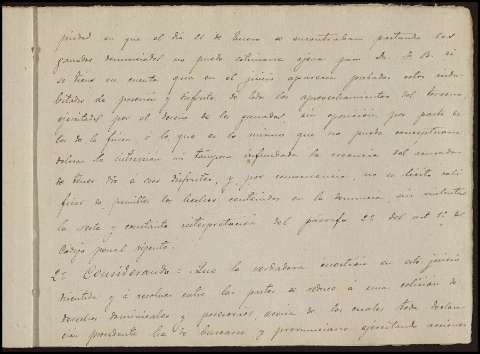 piedad en que el día 21 de Enero se encontraban pastando los
ganados denunciados no puede estimarse ajena para D. F. B. si
se tiene en cuenta que en el juicio aparecen probados actos indu-
bitados de posesión y disfrute de todos los aprovechamientos del terreno
ejecutados por el dueño de los ganados, sin oposición por parte de
los de la finca o lo que es lo mismo que no puede conceptuarse
dolosa la intención ni tampoco infundada la creencia del
de tener dro á sus disfrutes, y por consecuencia, no es lícito cali-
ficar de punibles los hechos contenidos en la denuncia, sin violentar
la recta y constante interpretación del párrafo 2º del art 1º del
Codigo penal vigente.
2º Considerando: Que la verdadera cuestión en este juicio
y á resolver entre las partes se reduce á una colisión de
derechos dominicales y posesorios, acerca de los cuales toda declara-
cion procedente ha de buscarse y pronunciarse ejercitando acciones